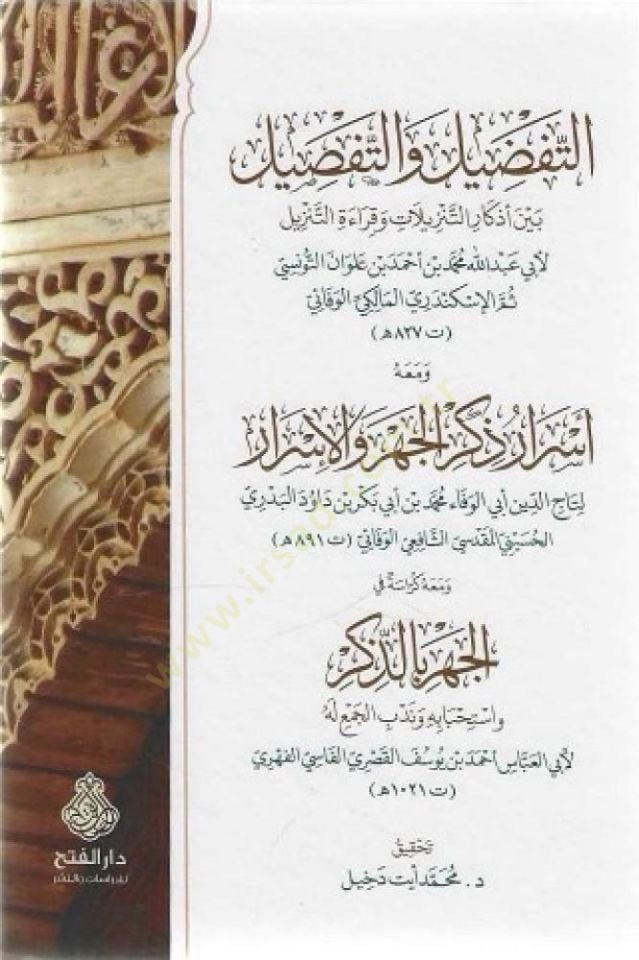 التَّفْضِيل وَالتَّفْصِيل
بَيْنَ أَذْكَارِ التَّنْزِيلَاتِ وَقِرَاءَةِ التَّنْزِيل
لأَبِي عَبْدِ الله مُحَمَّد بْنِ أَحْمَد بْنِ عَلْوَانَ التُّونُسِيّ
ثُمَّ الإِسْكَنْدَرِيّ المَالِكِيّ الوَفَائِيّ
(ت ٨٢٧هـ)
وَمَعَهُ
أَسْرَارُ ذِكْرِ الجَهْرِ وَالإِسْرَارِ
لِتَاجِ الدِّين أَبِي الوَفَاء مُحَمَّد بْن أَبِي بَكْر بْن دَاوُد البَدْرِيّ
الحُسَيْنِيّ المَقْدِسِيّ الشَّافِعِيّ الوَفَائِيّ (ت ٨٩١هـ)
وَمَعَهُ كُرَّاسَةٌ فِي
الجَهْرِ بِالذِّكْرِ
وَاسْتِحْبَابِهِ وَنَدْبِ الجَمْعِ لَهُ
لأَبِي العَبَّاس أَحْمَد بْن يُوسُف القَصْرِي الفَاسِي الفِهْرِي
(ت ١٠٢١هـ)
تَحْقِيق
د. مُحَمَّد أيت دَخِيل
دار الفتح
للدراسات والنشر